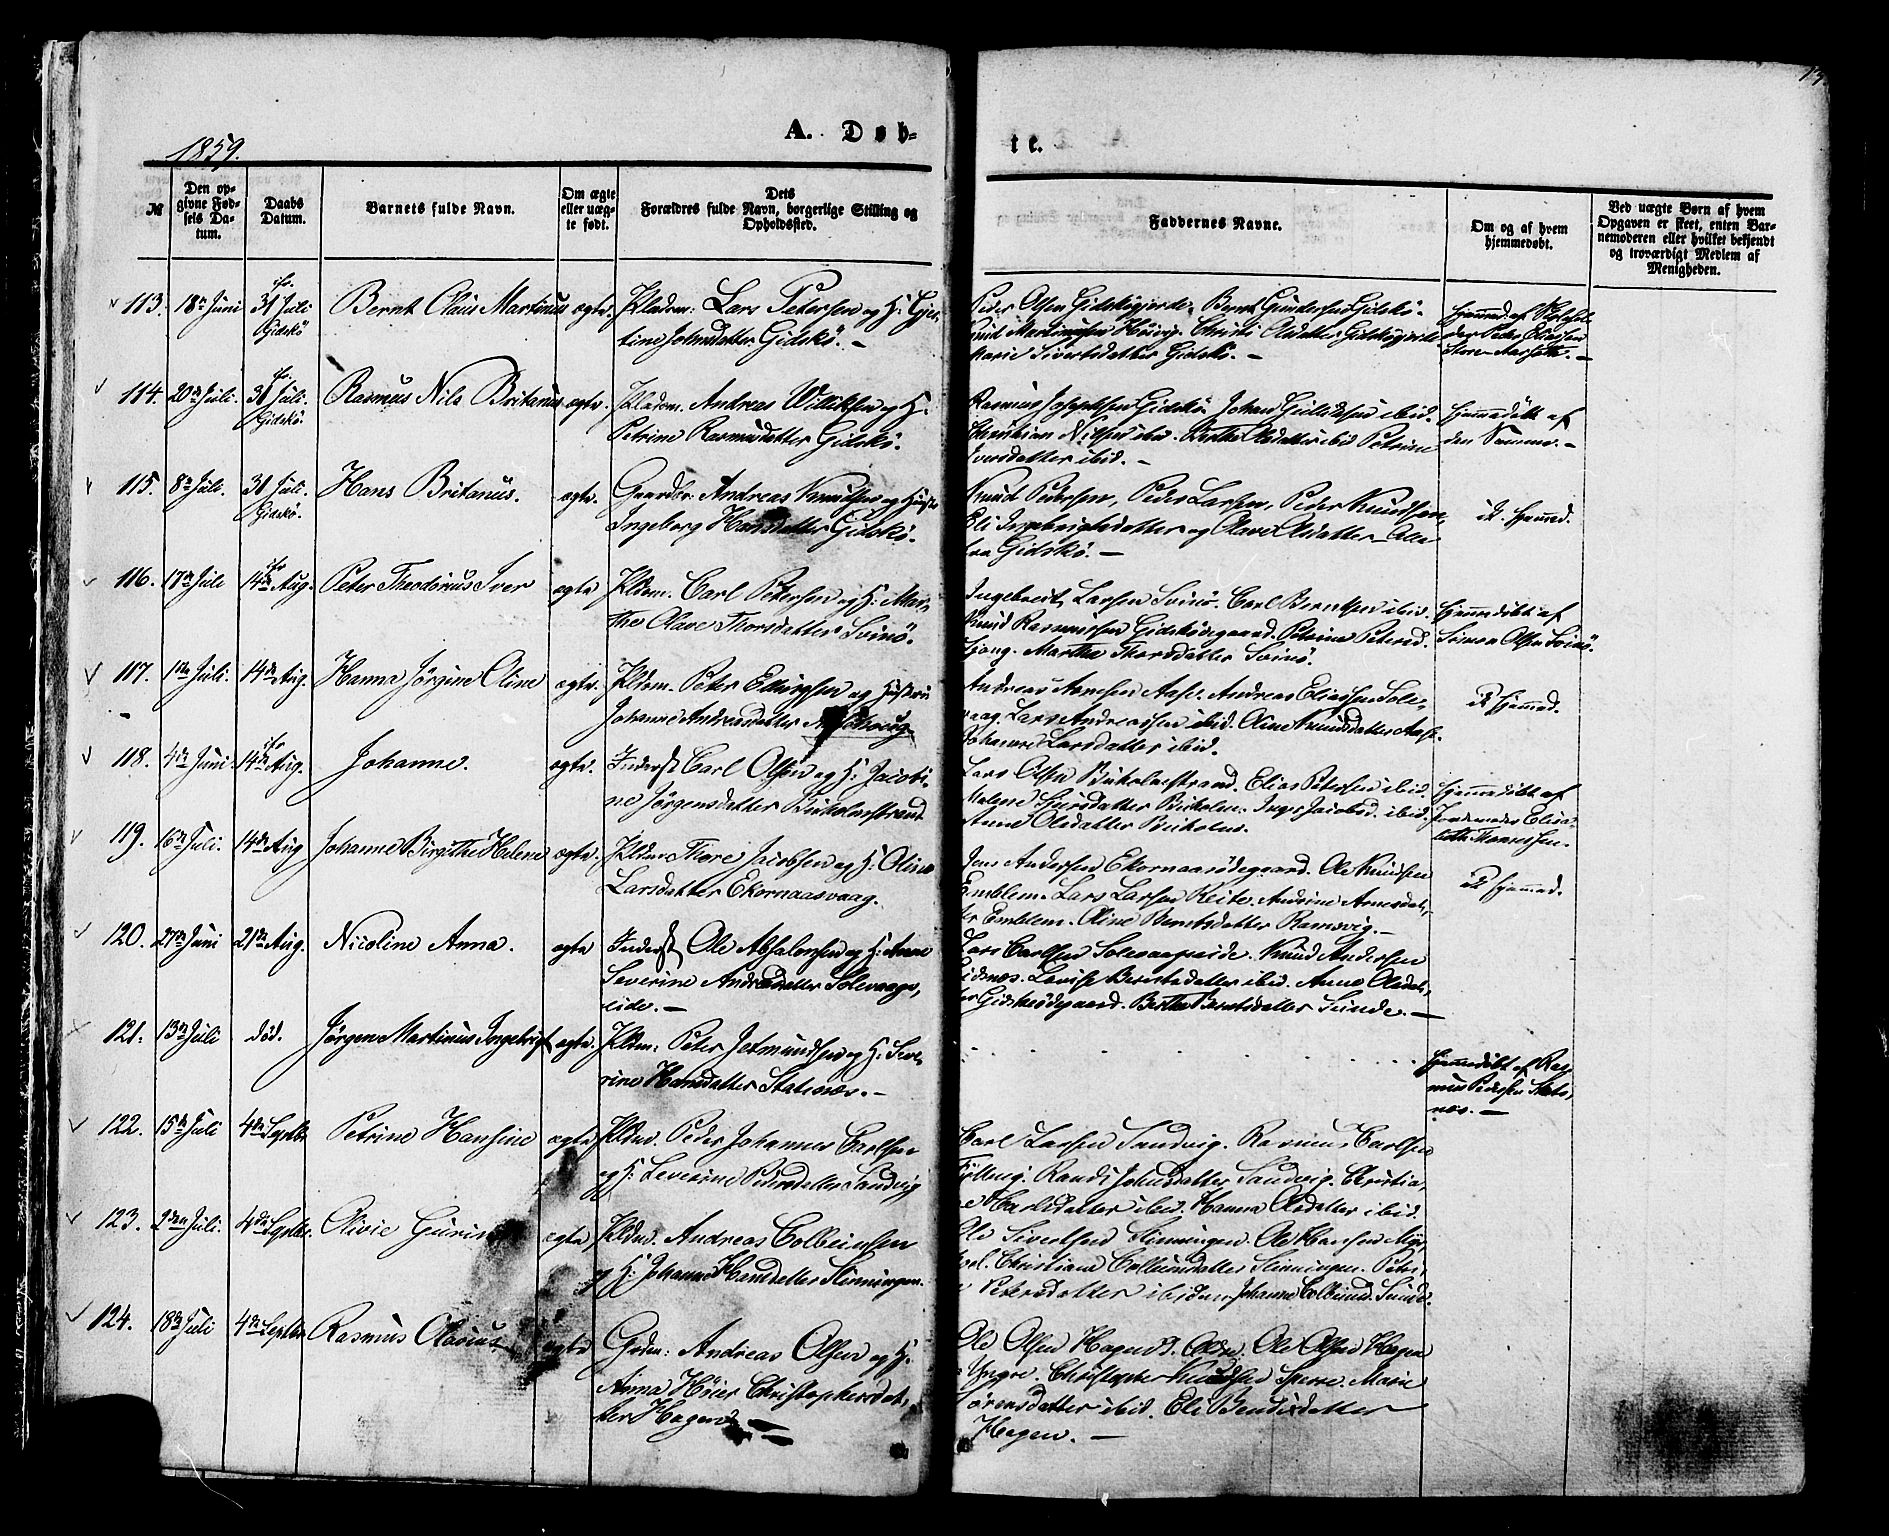 1859.
A. Døb-
te.
13
№
Den op-
givne Fød-
sels Da-
tum.
Daabs
Datum.
Barnets fulde Navn.
Om ægte
eller uæg-
te født.
Dets
Forældres fulde Navn, borgerlige Stilling og
Opholdssted.
Faddernes Navne.
Om og af hvem
hjemmedøbt.
Ved uægte Børn af hvem
Opgaven er skeet, enten Bar-
nemoderen eller hvilket bekjendt
og troværdigt Medlem af
Menigheden.
113. 18de Juni 31 Juli Gidskö Bernt Olaus Martinus ægte. Pladsm: Lars Petersen og H: Gjer-
tine Johnsdatter Gidskö. —
Peder Olsen Gidskögjerde, Bernt Gundersen Gidskö.
Knud Martinussen Christi Olsdatter Gidskögjerde
Marie Sivertsdatter Gidskö. —
hjemmed. af Skolehol-
der Peder Eliassen
114. 20de Juli. 31 Juli. Gidskö. Rasmus Nils Britanus ægte. Pladsm. Andreas Villiksen og H.
Petrine Rasmusdatter Gidskö.
Rasmus Josephsen Gidskö Johan ibid.
Christian Nilsen ibid. Berthe Olsdatter ibid Petrine
Iversdatter ibid. —
hjemmedöbt af
den Samme. —
115. 8de Juli. 31 Juli. Gidskö. Hans Britanus. ægte. Gaardbr. Andreas Knudsen og Hustr
Ingeborg Hansdatter Gidskö.
Knud Petersen, Peder Larsen, Peder Knudsen,
Eli Ingebrigtsdatter og Olave Olsdatter Alle
fra Gidskö. —
ik. hjemmed.
116. 17de Juli 14de Aug. Peter Theodorus Iver ægte Pldsm. Carl Petersen og H: Mar-
the Olave Thorsdatter Svinö.
Ingebrigt Larsen Svinö. Carl Berntsen ibid.
Knud Rasmussen Gidsködegaard. Petrine Petersd.
Martha Thorsdatter Svinö.
hjemmedöbt af
Simon Olsen Svinö.
117. 1ste Juli. 14de Aug. Hanna Jørgine Oline ægte. Pldsm. Peter Ellingsen og Hustru
Johanne Andreasdatter
Andreas Arnesen Aase. Andreas Eliassen Sole-
vaag. Lars Andreassen ibid. Oline Knudsdatter Aase.
Johanne Larsdatter ibid.
ik hjemmed.
118. 4de Juni. 14de Aug. Johanne. ægte. Inderst Carl Olsen og H: Jacobi-
ne Jørgensdatter
Lars Olsen Elias Petersen ibid.
Malene Inger Jacobsd. ibid.
Anne Olsdatter
hjemmedöbt af
Jordemoder Elisa-
beth Thomessen.
119. 16de Juli. 14de Aug Johanne Birgithe Helene ægte. Pldsm. Thore Jacobsen og H: Oline
Larsdatter Ekornaasvaag.
Jens Andersen Ekornaasødegaard. Ole Knudsen
Emblem. Lars Larsen Reite. Andrine Arnesdat-
ter Emblem. Oline Berntsdatter Ramsvig. —
ik hjemmed.
120. 27de Juni 21de Aug. Nicoline Anna. ægte Inderst Ole Absalonsen og H: Anne
Severine Andreasdatter Solevaags-
eide. —
Lars Carlsen Solevaagseide. Knud Andersen
Eidsnæs. Lovise Berntsdatter ibid. Anne Olsdat-
ter Gidskeødegaard. Berthe Berntsdatter Sunde. —
121. 13de Juli død. Jørgen Martinus Ingebrigt ægte. Pldsm: Peter Jetmundsen og H: Seve-
rine Hansdatter Slatenæs. —
hjemmedöbt af Ras-
mus Pedersen Slate-
næs. —
122. 15de Juli 4de Septbr Petrine Hansine ægte Pldsm. Peder Johannes Carlsen
og H: Severine Pedersdatter Sandvig
Carl Larsen Sandvig. Rasmus Carlsen
Randi Johnsdatter Sandvig. Christia-
ne Karlsdatter ibid. Hanna Olsdatter ibid.
123. 2den Juli. 4de Septbr. Olivie Gurine ægte Pldsm. Andreas Colbeinsen
og H: Johanne Hansdatter Slinningen.
Ole Sivertsen Slinningen. Ole Hansen
Christiane Colbeinsdatter Slinningen. Petri-
ne Petersdatter ibidem Johanne Colbeinsd. Sund.
124. 18de Juli 4de Septbr Rasmus Olavius ægte Grdm: Andreas Olsen og H.
Anna Høier Christophersdat-
ter Hagen. —
Ole Olsen Hagen d. Ældre. Ole Olsen Hagen
d. Yngre. Christopher Knudsen Sperre. Marie
Sörensdatter ibid. Eli Bendixdatter
Hagen. —